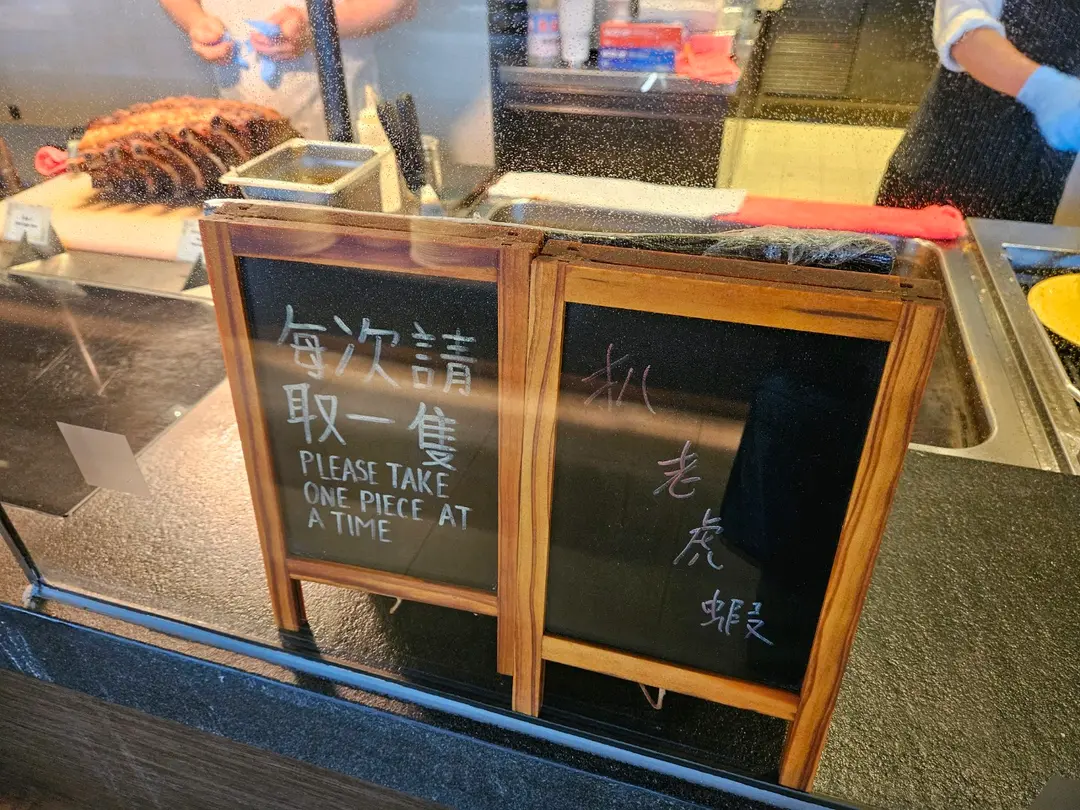 每次請
取一隻
PLEASE TAKE
ONE PIECE AT
A TIME
扒
老
虎
蝦